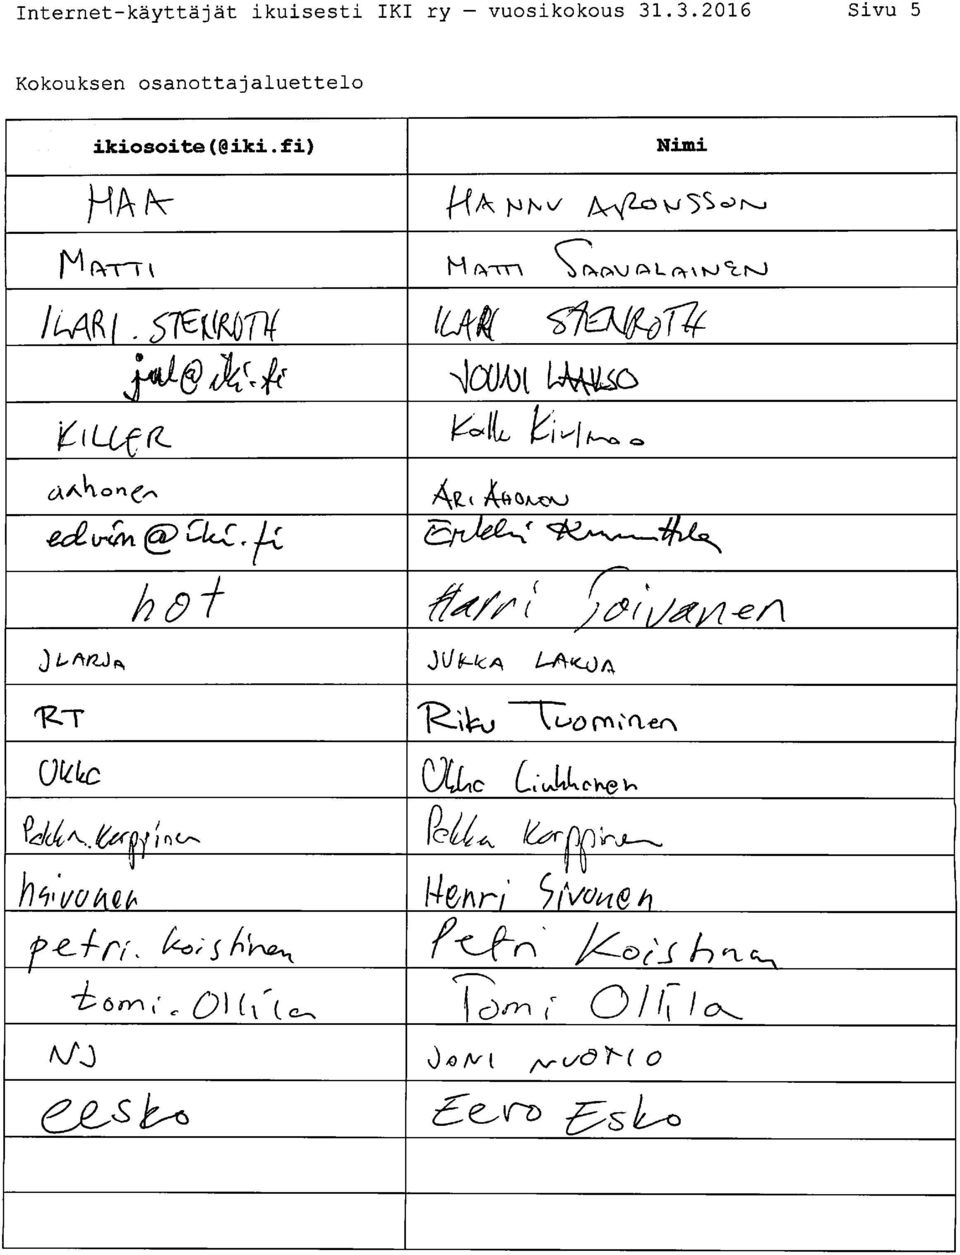 Internet-käyttäjät ikuisesti IKI ry — vuosikokous 31.3.2016 Sivu 5
Kokouksen osanottajaluettelo
ikiosoite(@iki.fi) Nimi
HAA HANNU ARONSSON
MATTI MATTI SAAVALAINEN
ILARI.STENROTH ILARI STENROTH
jal@iki.fi JOUNI LAAKSO
KILLER Kalle Kivimaa
aahonen ARI AHONEN
edvin@iki.fi Erkki
hot Harri Toivanen
JLARJA JUKKA LARJA
RT Riku Tuominen
OKKO Okko Liukkonen
Pekka.Karppinen Pekka Karppinen
hsivonen Henri Sivonen
petri.koistinen Petri Koistinen
tomi.Ollila Tomi Ollila
NJ JONI NUOTIO
eesko Eero Esko